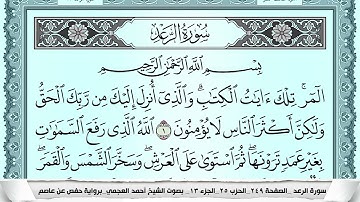 سُورَةُ الرَّعْدِ
بِسْمِ اللَّهِ الرَّحْمَٰنِ الرَّحِيمِ
الٓمٓر ۚ تِلْكَ ءَايَٰتُ الْكِتَٰبِ ۗ وَالَّذِىٓ أُنزِلَ إِلَيْكَ مِن رَّبِّكَ الْحَقُّ
وَلَٰكِنَّ أَكْثَرَ النَّاسِ لَا يُؤْمِنُونَ ١ اللَّهُ الَّذِى رَفَعَ السَّمَٰوَٰتِ
بِغَيْرِ عَمَدٍ تَرَوْنَهَا ۖ ثُمَّ اسْتَوَىٰ عَلَى الْعَرْشِ ۖ وَسَخَّرَ الشَّمْسَ وَالْقَمَرَ ۖ
سورة الرعد _ الصفحة ٢٤٩ _ الحزب ٢٥ _ الجزء ١٣ _ بصوت الشيخ أحمد العجمي _ برواية حفص عن عاصم